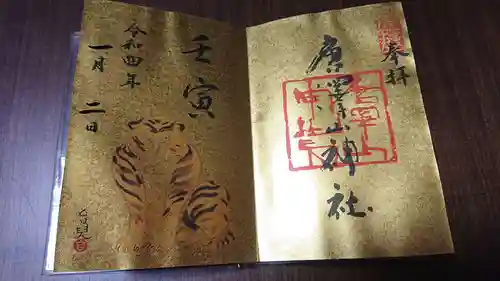 奉拝
廣澤山神社
壬寅
令和四年
一月二日